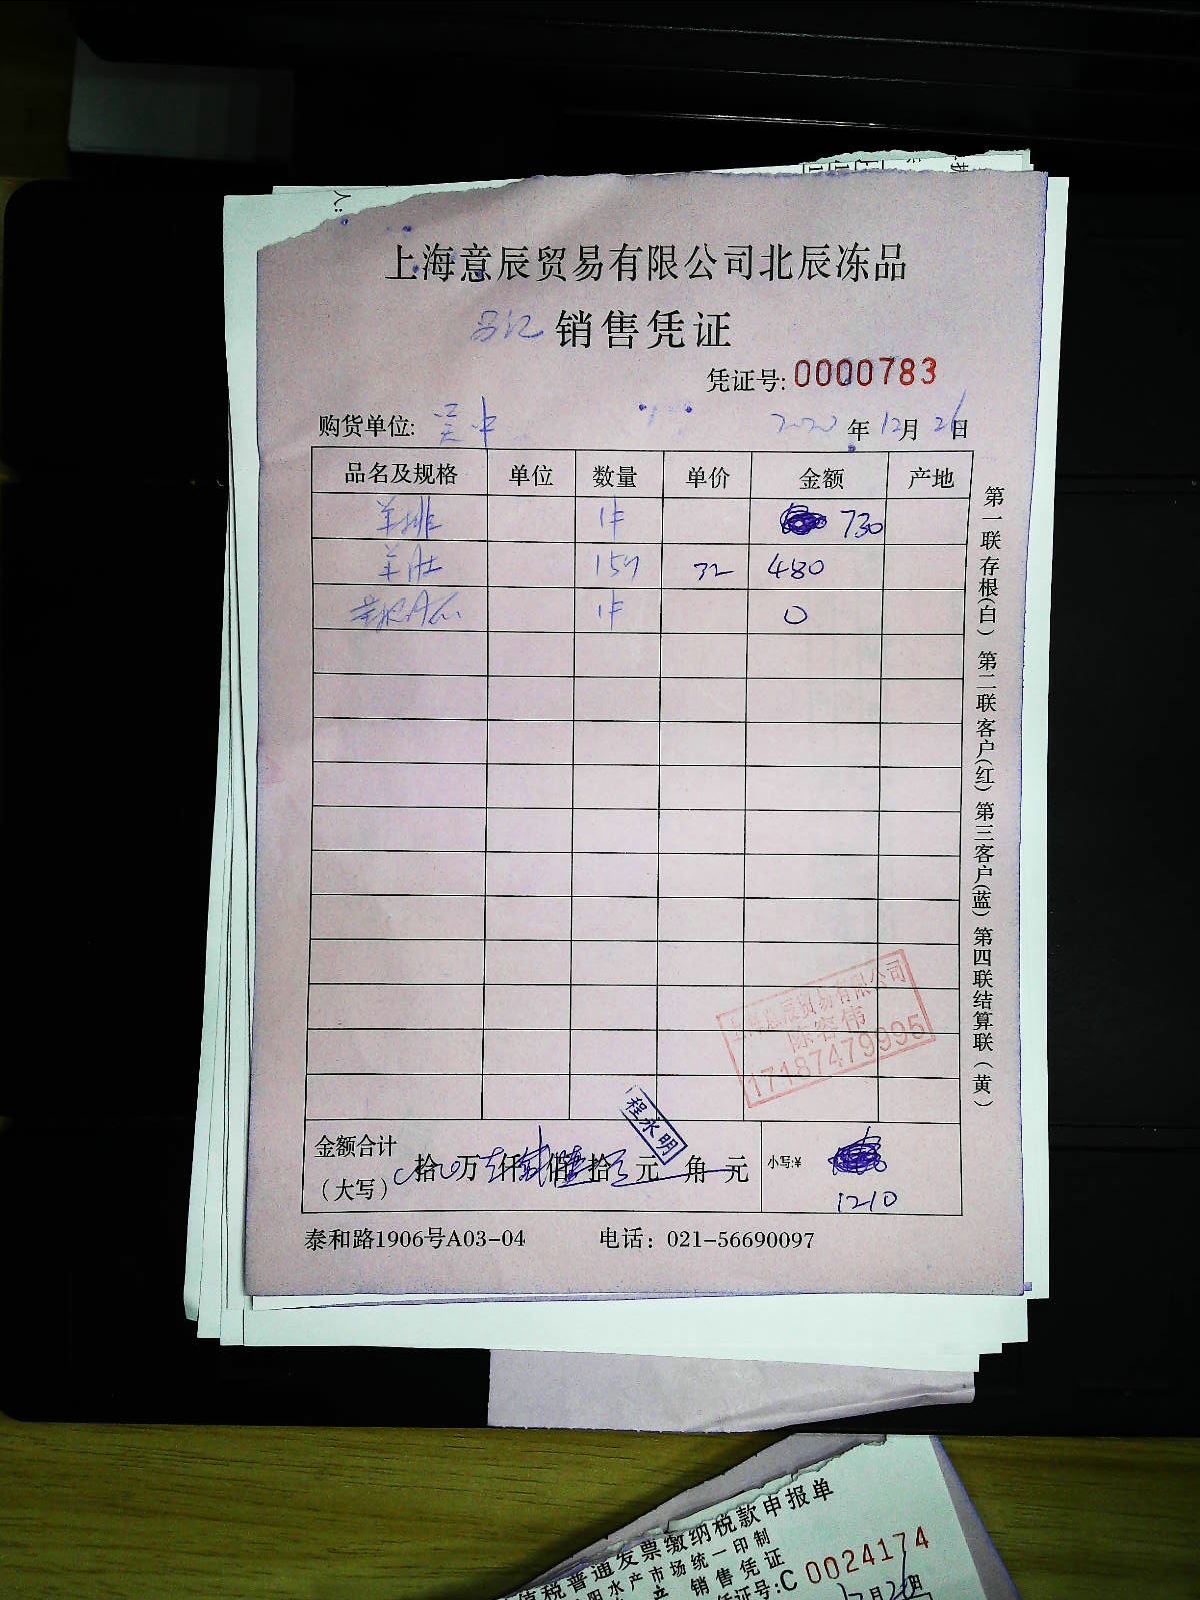 人:
上海意辰贸易有限公司北辰冻品
销售凭证
凭证号: 0000783
购货单位: 吴中 2020年12月26日
品名及规格 单位 数量 单价 金额 产地
羊排 1件 730
羊肚 15斤 32 480
1件 0
第一联存根(白) 第二联客户(红) 第三客户(蓝) 第四联结算联(黄)
上海意辰贸易有限公司
陈容伟
17187479995
程永明
金额合计
(大写) 拾 万 仟 佰 拾 元 角 元 小写:¥ 1210
泰和路1906号A03-04 电话: 021-56690097
值税普通发票缴纳税款申报单
阳水产市场统一印制
产 销售凭证
证号:C 0024174
12月26日